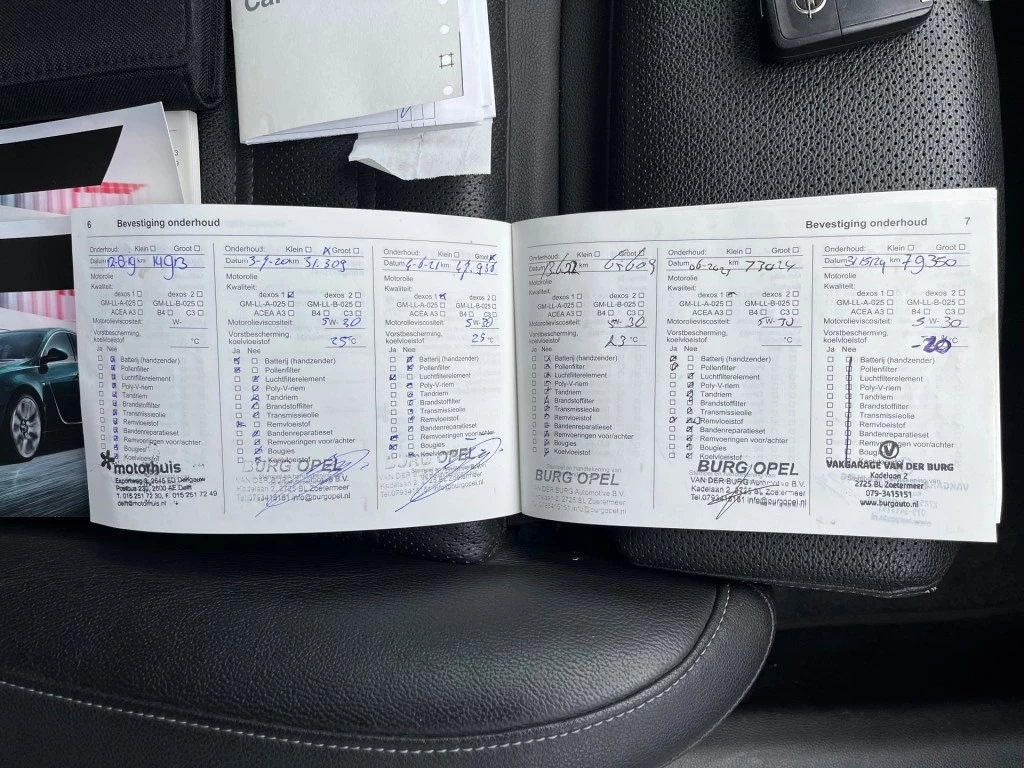 Car
6 Bevestiging onderhoud
Onderhoud: Klein ☐ Groot ☐
Datum 12-8-19 km
Motorolie
Kwaliteit:
dexos 1 ☐ dexos 2 ☐
GM-LL-A-025 ☐ GM-LL-B-025 ☐
ACEA A3 ☐ B4 ☐ C3 ☐
Motorolieviscositeit: W-
Vorstbescherming,
koelvloeistof °C
Ja Nee
Batterij (handzender)
Pollenfilter
Luchtfilterelement
Poly-V-riem
Tandriem
Brandstoffilter
Transmissieolie
Remvloeistof
Bandenreparatieset
Remvoeringen voor/achter
Bougies
Koelvloeistof
motorhuis
Exportweg 3, 2645 ED Delfgauw
Postbus 232, 2600 AE Delft
T. 015 251 72 30, F. 015 251 72 49
delft@motorhuis.nl
Onderhoud: Klein ☐ Groot ☐
Datum 3-9-20 km 31.309
Motorolie
Kwaliteit:
dexos 1 dexos 2 ☐
GM-LL-A-025 ☐ GM-LL-B-025 ☐
ACEA A3 ☐ B4 ☐ C3 ☐
Motorolieviscositeit: 5 W- 30
Vorstbescherming,
koelvloeistof 25 °C
Ja Nee
Batterij (handzender)
Pollenfilter
Luchtfilterelement
Poly-V-riem
Tandriem
Brandstoffilter
Transmissieolie
Remvloeistof
Bandenreparatieset
Remvoeringen voor/achter
Bougies
Koelvloeistof
BURG OPEL
VAN DER BURG Automotive B.V.
Kadelaan 2, 2725 BL Zoetermeer
Tel.0793415151 info@burgopel.nl
Onderhoud: Klein ☐ Groot
Datum km
Motorolie
Kwaliteit:
dexos 1 dexos 2 ☐
GM-LL-A-025 ☐ GM-LL-B-025 ☐
ACEA A3 ☐ B4 ☐ C3 ☐
Motorolieviscositeit: 5 W- 30
Vorstbescherming,
koelvloeistof 25 °C
Ja Nee
Batterij (handzender)
Pollenfilter
Luchtfilterelement
Poly-V-riem
Tandriem
Brandstoffilter
Transmissieolie
Remvloeistof
Bandenreparatieset
Remvoeringen voor/achter
Bougies
Koelvloeistof
BURG OPEL
VAN DER BURG Automotive B.V.
Kadelaan 2, 2725 BL Zoetermeer
Tel.0793415151 info@burgopel.nl
Bevestiging onderhoud 7
Onderhoud: Klein ☐ Groot
Datum km 65609
Motorolie
Kwaliteit:
dexos 1 ☐ dexos 2 ☐
GM-LL-A-025 ☐ GM-LL-B-025 ☐
ACEA A3 ☐ B4 ☐ C3 ☐
Motorolieviscositeit: 5 W- 30
Vorstbescherming,
koelvloeistof 23 °C
Ja Nee
Batterij (handzender)
Pollenfilter
Luchtfilterelement
Poly-V-riem
Tandriem
Brandstoffilter
Transmissieolie
Remvloeistof
Bandenreparatieset
Remvoeringen voor/achter
Bougies
Koelvloeistof
BURG OPEL
VAN DER BURG Automotive B.V.
Kadelaan 2, 2725 BL Zoetermeer
Tel.0793415151 info@burgopel.nl
Onderhoud: Klein ☐ Groot ☐
Datum km 73024
Motorolie
Kwaliteit:
dexos 1 dexos 2 ☐
GM-LL-A-025 ☐ GM-LL-B-025 ☐
ACEA A3 ☐ B4 ☐ C3 ☐
Motorolieviscositeit: 5 W-
Vorstbescherming,
koelvloeistof °C
Ja Nee
Batterij (handzender)
Pollenfilter
Luchtfilterelement
Poly-V-riem
Tandriem
Brandstoffilter
Transmissieolie
Remvloeistof
Bandenreparatieset
Remvoeringen voor/achter
Bougies
Koelvloeistof
BURG OPEL
VAN DER BURG Automotive B.V.
Kadelaan 2, 2725 BL Zoetermeer
Tel.0793415151 info@burgopel.nl
Onderhoud: Klein ☐ Groot ☐
Datum km 79350
Motorolie
Kwaliteit:
dexos 1 ☐ dexos 2 ☐
GM-LL-A-025 ☐ GM-LL-B-025 ☐
ACEA A3 ☐ B4 ☐ C3 ☐
Motorolieviscositeit: 5 W- 30
Vorstbescherming,
koelvloeistof -20
Ja Nee
Batterij (handzender)
Pollenfilter
Luchtfilterelement
Poly-V-riem
Tandriem
Brandstoffilter
Transmissieolie
Remvloeistof
Bandenreparatieset
Remvoeringen voor/achter
Bougies
Koelvloeistof
VAKGARAGE VAN DER BURG
Kadelaan 2
2725 BL Zoetermeer
079-3415151
www.burgauto.nl